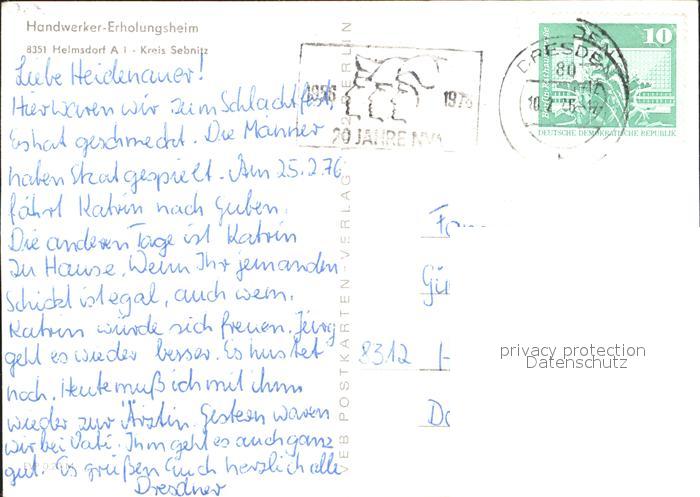 Handwerker-Erholungsheim
8351 Helmsdorf A 1 - Kreis Sebnitz
Liebe Heidenauer!
Hier waren wir zum Schlachtfest,
Es hat geschmeckt. Die Männer
haben Skat gespielt. Am 25.2.76
fährt Katrin nach Guben.
Die anderen Tage ist Katrin
zu Hause. Wenn Ihr jemanden
schickt ist egal, auch wenn.
Katrin würde sich freuen. Jürg
geht es wieder besser. Er hustet
noch. Heute muß ich mit ihm
wieder zur Ärztin. Gestern waren
wir bei Vati. Ihm geht es auch ganz
gut. Es grüßen Euch herzlich alle
Dresdner
VEB POSTKARTEN-VERLAG BERLIN
1956 1976
20 JAHRE NVA
DRESDEN
80
10
DEUTSCHE DEMOKRATISCHE REPUBLIK
8312
privacy protection
Datenschutz